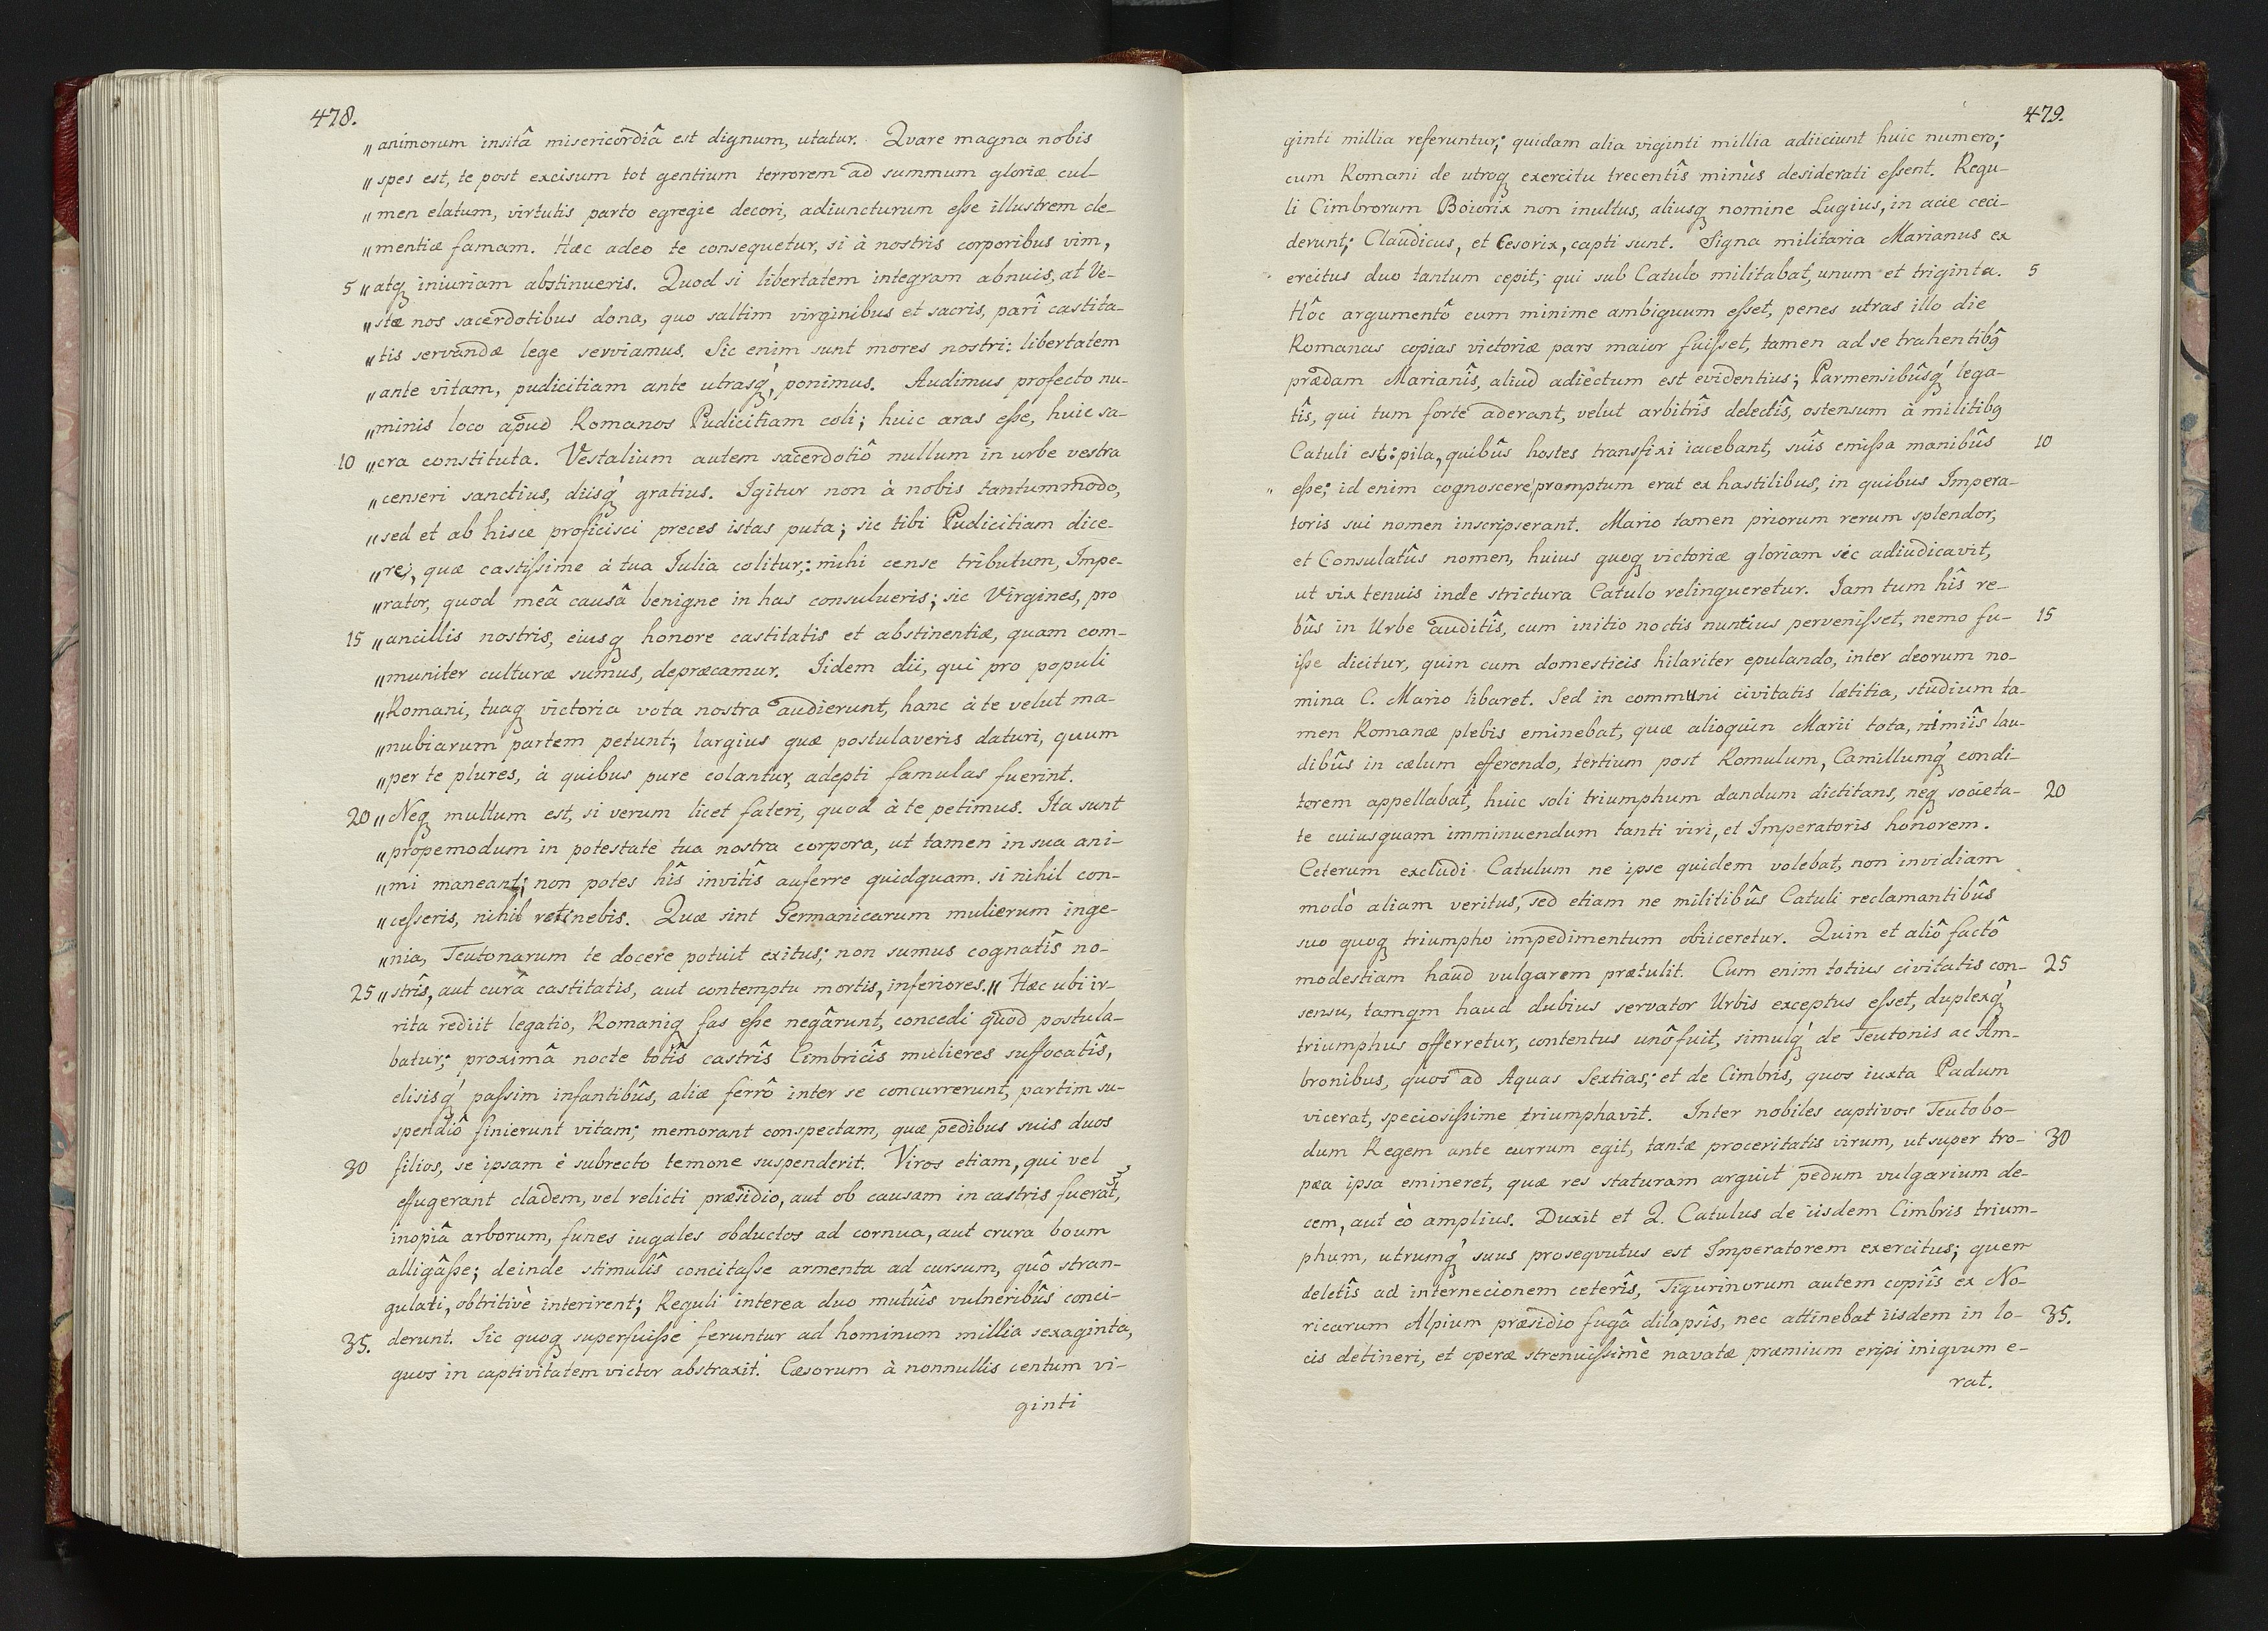 478.
„animorum insitâ misericordiâ est dignum, utatur. Quare magna nobis
„spes est, te post excisum tot gentium terrorem ad summum gloriæ cul-
„men elatum, virtutis parto egregie decori, adiuncturum eſse illustrem cle-
„mentiæ famam. Hæc adeo te consequetur, si à nostris corporibus vim,
5 „atq iniuriam abstinueris. Quod si libertatem integram abnuis, at Ve-
„stæ nos sacerdotibus dona, quo saltim virginibus et sacris, parî castita-
„tis servandæ lege serviamus. Sic enim sunt mores nostri: libertatem
„ante vitam, pudicitiam ante utrasq́, ponimus. Audimus profecto nu-
„minis loco apud Romanos Pudicitiam coli; huic aras eſse, huic sa-
10 „cra constituta. Vestalium autem sacerdotiô nullum in urbe vestra
„censeri sanctius, diisq́ gratius. Igitur non à nobis tantummodo,
„sed et ab hisce proficisci preces istas puta; sic tibi Pudicitiam dice-
„re, quæ castiſsime à tua Iulia colitur: mihi cense tributum, Impe-
„rator, quod meâ causâ benigne in has consulueris; sic Virgines, pro
15 „ancillis nostris, eiusq honore castitatis et abstinentiæ, quam com-
„muniter culturæ sumus, depræcamur. Iidem dii, qui pro populi
„Romani, tuaq victoria vota nostra audierunt, hanc à te velut ma-
„nubiarum partem petunt; largius quæ postulaveris daturi, quum
„per te plures, à quibus pure colantur, adepti famulas fuerint.
20 „Neq multum est, si verum licet fateri, quod à te petimus. Ita sunt
„propemodum in potestate tua nostra corpora, ut tamen in sua ani-
„mi maneant; non potes hîs invitîs auferre quidquam. si nihil con-
„ceſseris, nihil retinebis. Quæ sint Germanicarum mulierum inge-
„nia, Teutonarum te docere potuit exitus; non sumus cognatîs no-
25 „strîs, aut curâ castitatis, aut contemptu mortis, inferiores.„ Hæc ubi ir-
rita rediit legatio, Romaniq fas eſse negârunt, concedi quod postula-
batur; proximâ nocte totîs castrîs Cimbricîs mulieres suffocatîs,
elisisq́ paſsim infantibûs, aliæ ferrô inter se concurrerunt, partim su-
spendiô finierunt vitam; memorant conspectam, quæ pedibus suis duos
30 filios, se ipsam è subrecto temone suspenderit. Viros etiam, qui vel
effugerant cladem, vel relicti præsidio, aut ob causam in castris fuerat,
inopiâ arborum, funes iugales obductos ad cornua, aut crura boum
alligâſse; deinde stimulîs concitaſse armenta ad cursum, quô stran-
gulati, obtritivè interirent; Reguli interea duo mutuîs vulneribûs conci-
35. derunt. Sic quoq superfuiſse feruntur ad hominum millia sexaginta,
quos in captivitatem victor abstraxit. Cæsorum à nonnullis centum vi-
ginti
479.
ginti millia referuntur; quidam alia viginti millia adiiciunt huic numero;
cum Romani de utroq exercitu trecentîs minùs desiderati eſsent. Regu-
li Cimbrorum Boiorix non inultus, aliusq nomine Lugius, in acie ceci-
derunt; Claudicus, et Cesorix, capti sunt. Signa militaria Marianus ex
ercitus duo tantum cepit; qui sub Catulo militabat, unum et triginta. 5
Hôc argumentô cum minime ambiguum eſset, penes utras illo die
Romanas copias victoriæ pars maior fuiſset, tamen ad se trahentibq
prædam Marianîs, aliud adiectum est evidentius; Parmensibûsq́ lega-
tîs, qui tum forte aderant, velut arbitrîs delectîs, ostensum à militibq
Catuli est: pila, quibûs hostes transfixi iacebant, suîs emiſsa manibûs 10
eſse; id enim cognoscere promptum erat ex hastilibus, in quibus Impera-
toris sui nomen inscripserant. Mario tamen priorum rerum splendor,
et Consulatûs nomen, huius quoq victoriæ gloriam sic adiudicavit,
ut vix tenuis inde strictura Catulo relinqueretur. Iam tum hîs re-
bûs in Urbe auditîs, cum initio noctis nuntius perveniſset, nemo fu- 15
iſse dicitur, quin cum domesticis hilariter epulando, inter deorum no-
mina C. Mario libaret. Sed in communi civitatis lætitia, studium ta-
men Romanæ plebis eminebat, quæ alioquin Marii tota, nimiîs lau-
dibûs in cælum efferendo, tertium post Romulum, Camillumq́ condi-
torem appellabat, huic soli triumphum dandum dictitans, neq societa- 20
te cuiusquam imminuendum tanti viri, et Imperatoris honorem.
Ceterum excludi Catulum ne ipse quidem volebat, non invidiam
modò aliam veritus, sed etiam ne militibûs Catuli reclamantibûs
suo quoq triumpho impedimentum obiiceretur. Quin et aliô factô
modestiam haud vulgarem prætulit. Cum enim totius civitatis con- 25
sensu, tamqm haud dubius servator Urbis exceptus eſset, duplexq́
triumphus offerretur, contentus unô fuit, simulq́ de Teutonis ac Am-
bronibus, quos ad Aquas Sextias; et de Cimbris, quos iuxta Padum
vicerat, speciosiſsime triumphavit. Inter nobiles captivos Teutobo-
dum Regem ante currum egit, tantæ proceritatis virum, ut super tro- 30
pæa ipsa emineret, quæ res staturam arguit pedum vulgarium de-
cem, aut eò amplius. Duxit et Q. Catulus de iisdem Cimbris trium-
phum, utrumq́ suus proseqvutus est Imperatorem exercitus; quem
deletîs ad internecionem ceterîs, Tigurinorum autem copiîs ex No-
ricarum Alpium præsidio fugâ dilapsîs, nec attinebat iisdem in lo- 35.
cis detineri, et operæ strenuiſsimè navatæ præmium eripi iniqvum e-
rat.